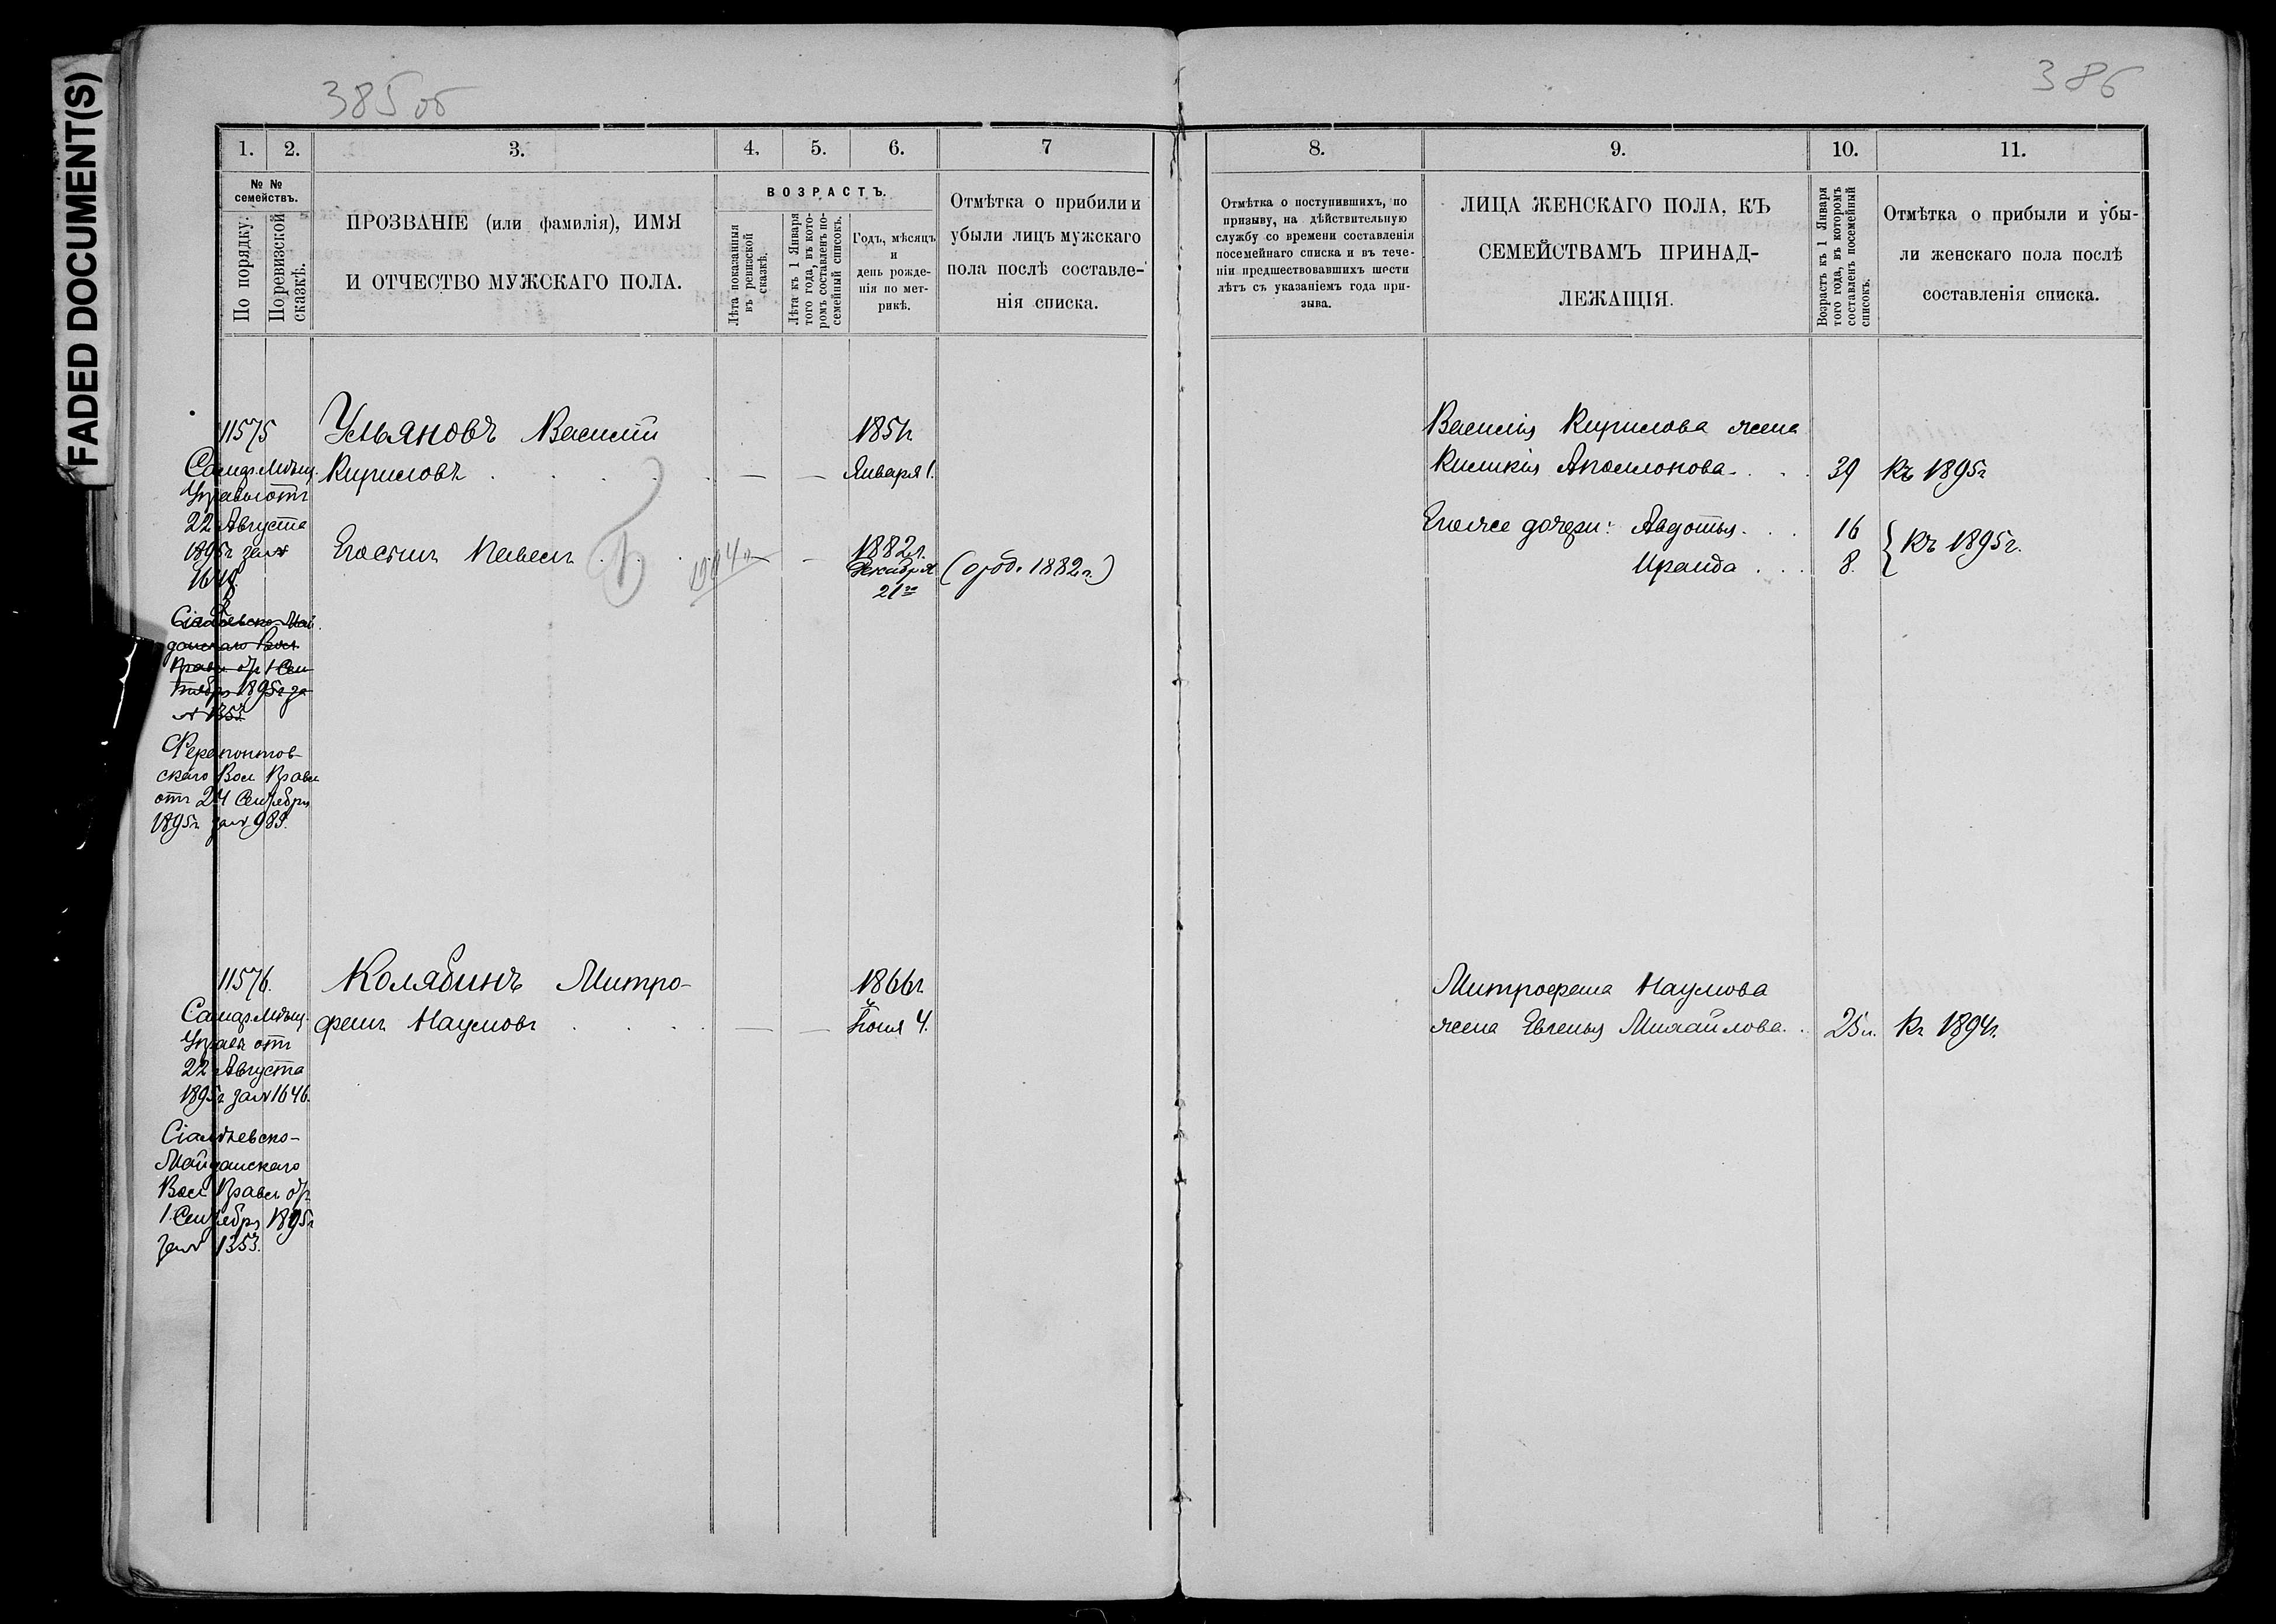 FADED DOCUMENT(S)
385 об
386
1.
2.
3.
4.
5.
6.
7
№ №
семействъ.
По порядку.
По ревизской
сказкѣ.
ПРОЗВАНІЕ (или фамилія), ИМЯ
И ОТЧЕСТВО МУЖСКАГО ПОЛА.
ВОЗРАСТЪ.
Лѣта показанныя
въ ревизской
сказкѣ.
Лѣта къ 1 Января
того года, въ кото-
ромъ составленъ по-
семейный списокъ.
Годъ, мѣсяцъ
и
день рожде-
нія по мет-
рикѣ.
Отмѣтка о прибыли и
убыли лицъ мужскаго
пола послѣ составле-
нія списка.
8.
9.
10.
11.
Отмѣтка о поступившихъ, по
призыву, на дѣйствительную
службу со времени составленія
посемейнаго списка и въ тече-
ніи предшествовавшихъ шести
лѣтъ съ указаніемъ года при-
зыва.
ЛИЦА ЖЕНСКАГО ПОЛА, КЪ
СЕМЕЙСТВАМЪ ПРИНАД-
ЛЕЖАЩІЯ.
Возрастъ къ 1 Января
того года, въ которомъ
составленъ посемейный
списокъ.
Отмѣтка о прибыли и убы-
ли женскаго пола послѣ
составленія списка.
11575
Самар. Мѣщ.
Управы отъ
22 Августа
1895г за №
Сіалѣевско-Май
данскаго Вол
Правл. отъ 1 Сен
тября 1895г за
№ 1353
Ферапонтов-
скаго Вол Правл
отъ 24 Сентября
1895г за № 983.
Ульяновъ Василій
Кириловъ
1851г
Января 1.
Его сынъ Павелъ
1904
1882г.
Декабря
21го
(обр. 1882г.)
Василія Кирилова жена
Киликія Аполлонова
39
Къ 1895г
Его же дочери: Авдотья
16
Ираида
8.
Къ 1895г.
11576.
Самар. Мѣщ.
Управы отъ
22 Августа
1895г за № 1646.
Сіалѣевско-
Майданскаго
Вол Правл отъ
1 Сентября 1895г
за № 1353.
Колябинъ Митро-
фанъ Наумовъ
1866г
Іюня 4.
Митрофана Наумова
жена Евгенья Михайлова
25л.
Къ 1894г.